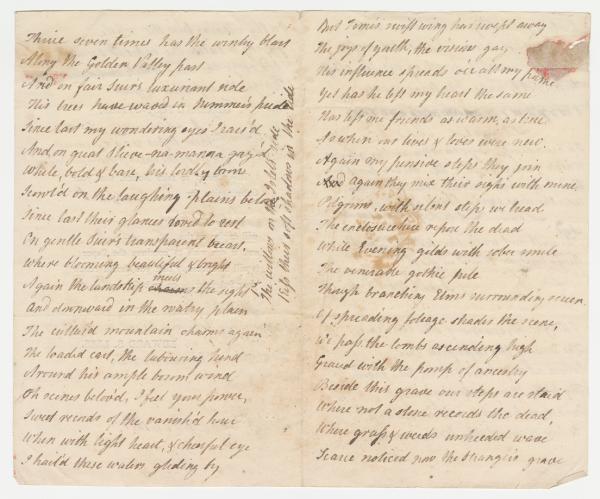 Thrice seven times has the wintry blast
Along the Golden Valley past
And on fair Suir's luxuriant side
His trees have waved in Summer's pride
Since last my wondering eyes I rais'd
And on great Slieve-na-manna gaz'd
While, bold & bare, his lordly brow
Scowl'd on the laughing plains below
Since last their glances lov'd to rest
On gentle Suir's transparent breast,
Where blooming beautiful & bright
Again the landskip meets the sight
And downward in the watry plain
The cultur'd mountain charms again
The loaded cart, the labouring hind
Around his ample bosom wind
Oh scenes belov'd, I feel your power,
Sweet records of the vanish'd hour
When with light heart, & chearful eye
I hail'd these waters gliding by
The willows on the Islets side
Kiss their soft shadows in the tide
But Time's swift wing has swept away
The joys of youth, the visions gay,
His influence spreads o'er all my frame
Yet has he left my heart the same
Has left me friends as warm, as true
As when our lives & loves were new.
Again my pensive steps they join
And again they mix their sighs with mine,
Pilgrims, with silent steps we tread
The enclose where repose the dead
While Evening gilds with sober smile
The venerable gothic pile
Though branching Elms surrounding
Of spreading foliage shades the scene,
We pass the tombs ascending high
Graved with the pomp of ancestry
Beside this grave our steps are staid
Where not a stone records the dead,
Where grass & weeds unheeded wave
Scarce noticed now the Stranger's grave